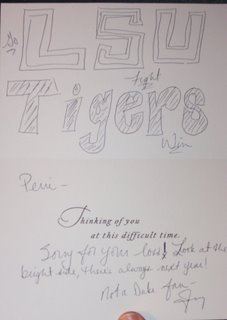 Go LSU
Fight
Tigers
Win
Perri-
Thinking of you
at this difficult time.
Sorry for your loss! Look at the
bright side, there's always next year!
Not a Duke fan-